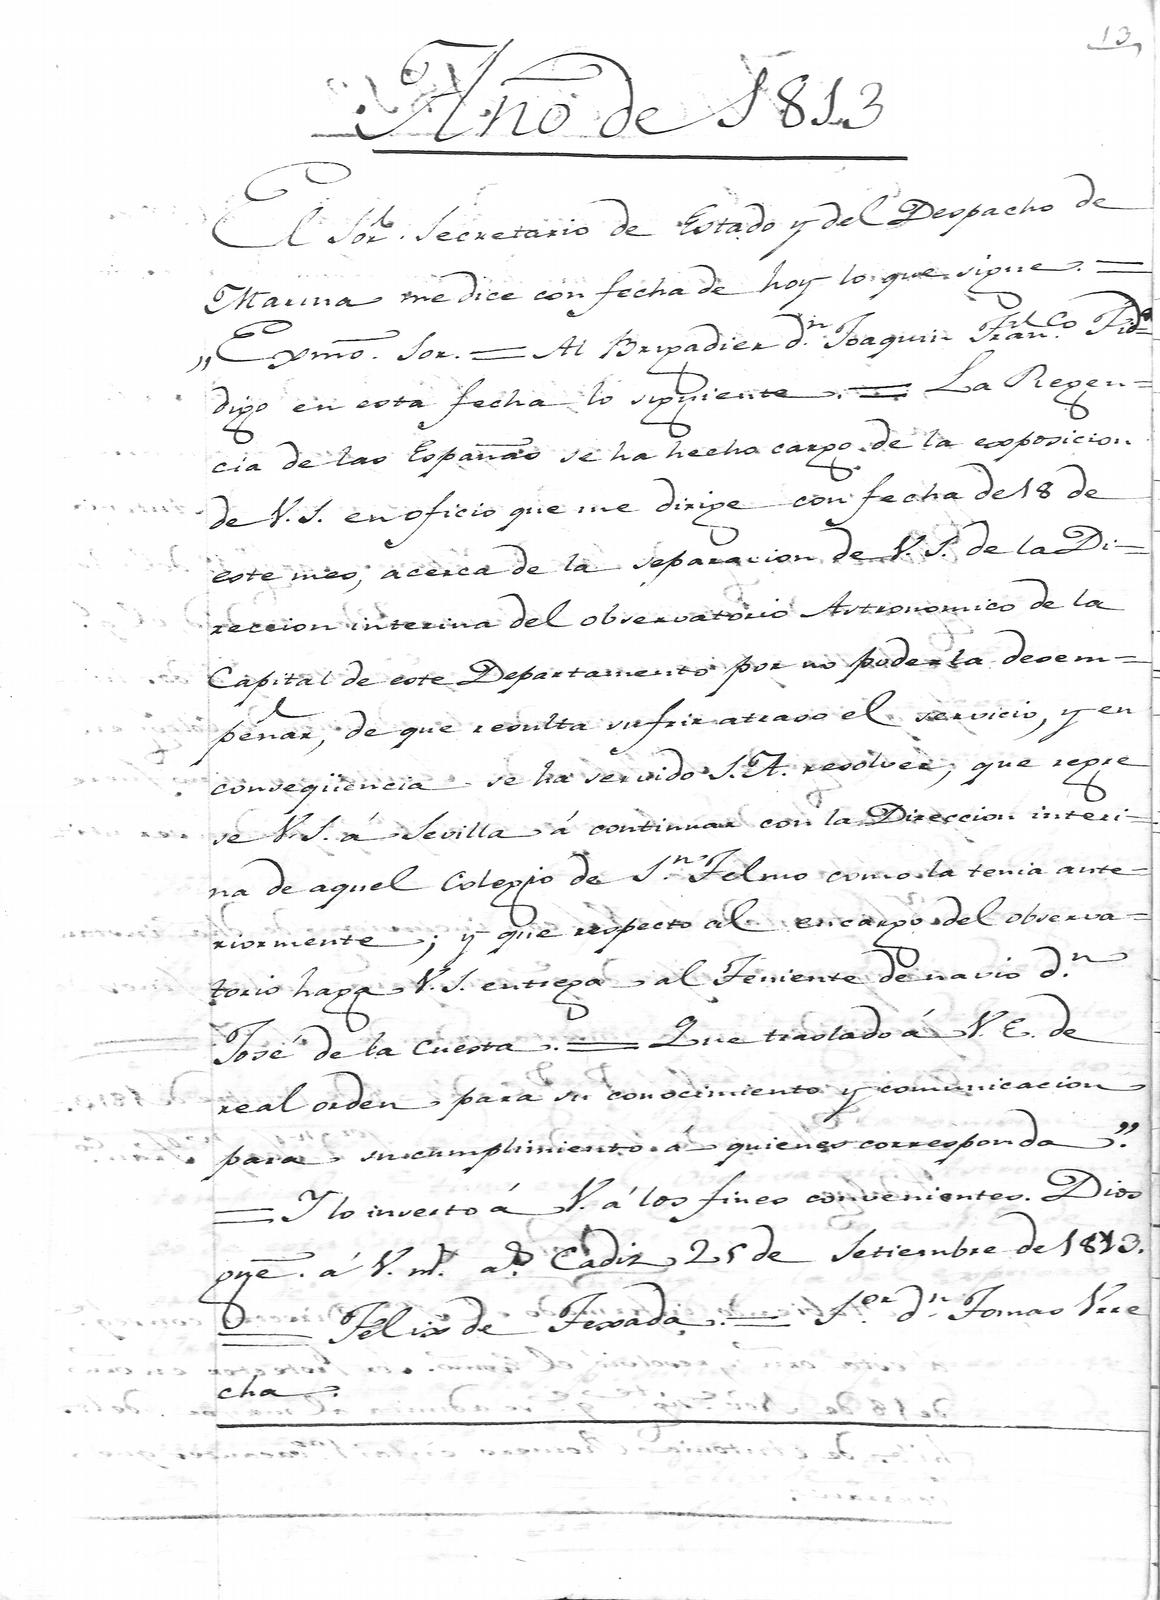 13
Año de 1813
El Sor. Secretario de Estado y del Despacho de
Marina me dice con fecha de hoy lo que sigue. =
„Exmõ. Sor. = Al Brigadier d.n Joaquin Fran.co Fid.l
digo en esta fecha lo siguiente. = La Regen=
cia de las Españas se ha hecho cargo de la exposicion
de V.S. en oficio que me dirige con fecha de 18 de
este mes, acerca de la separacion de V.S. de la Di=
reccion interina del observatorio Astronomico de la
Capital de este Departamento por no poderla desem=
peñar, de que resulta sufrir atraso el servicio, y en
conseqüencia se ha servido S.A. resolver, que regre
se V.S. á Sevilla á continuar con la Direccion interi=
na de aquel Colegio de S.n Telmo como la tenia ante=
riormente; y que respecto al encargo del observa=
torio haga V.S. entrega al Teniente de navio d.n
José de la Cuesta. = Que traslado á V.E. de
real orden para su conocimiento y comunicacion
para su cumplimiento á quienes corresponda”.
= Y lo inserto á V. á los fines convenientes. Dios
gue. á V. m.s a.s Cadiz 25 de Setiembre de 1813.
= Felix de Texada. = S.or d.n Tomas Vrre
cha.